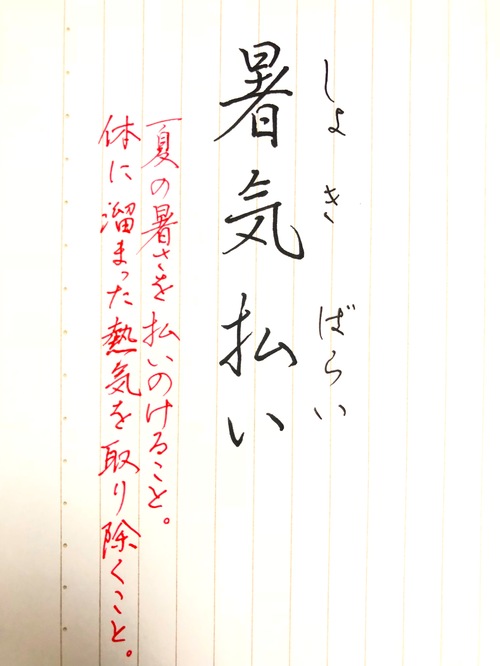 しょきばらい
暑気払い
夏の暑さを払いのけること。
体に溜まった熱気を取り除くこと。